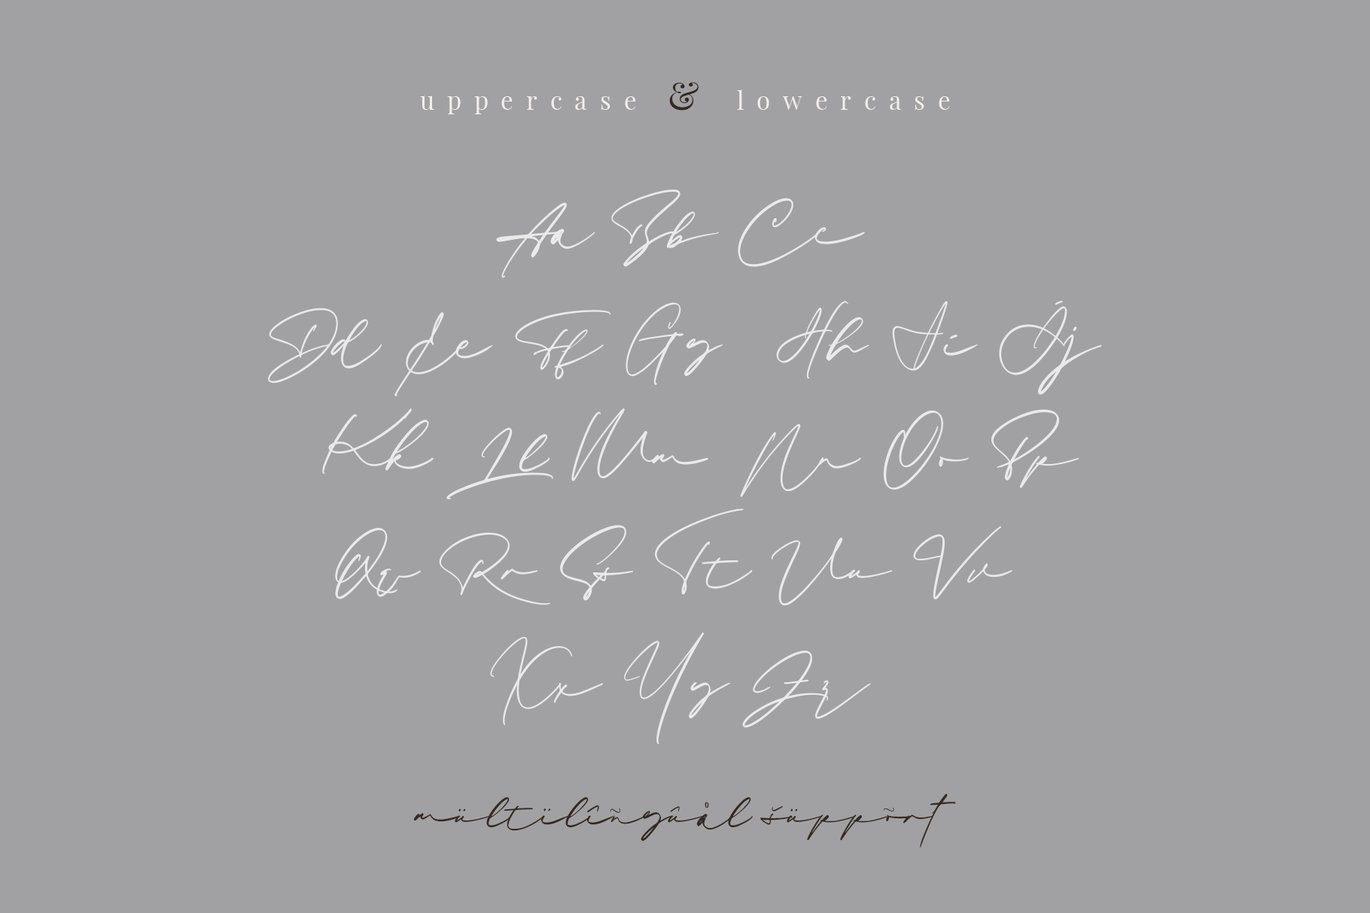 uppercase & lowercase
Aa Bb Cc
Dd Ee Ff Gg Hh Ii Jj
Kk Ll Mm Nn Oo Pp
Qq Rr Ss Tt Uu Vv
Xx Yy Zz
mültïlîñgûål šüppõrt